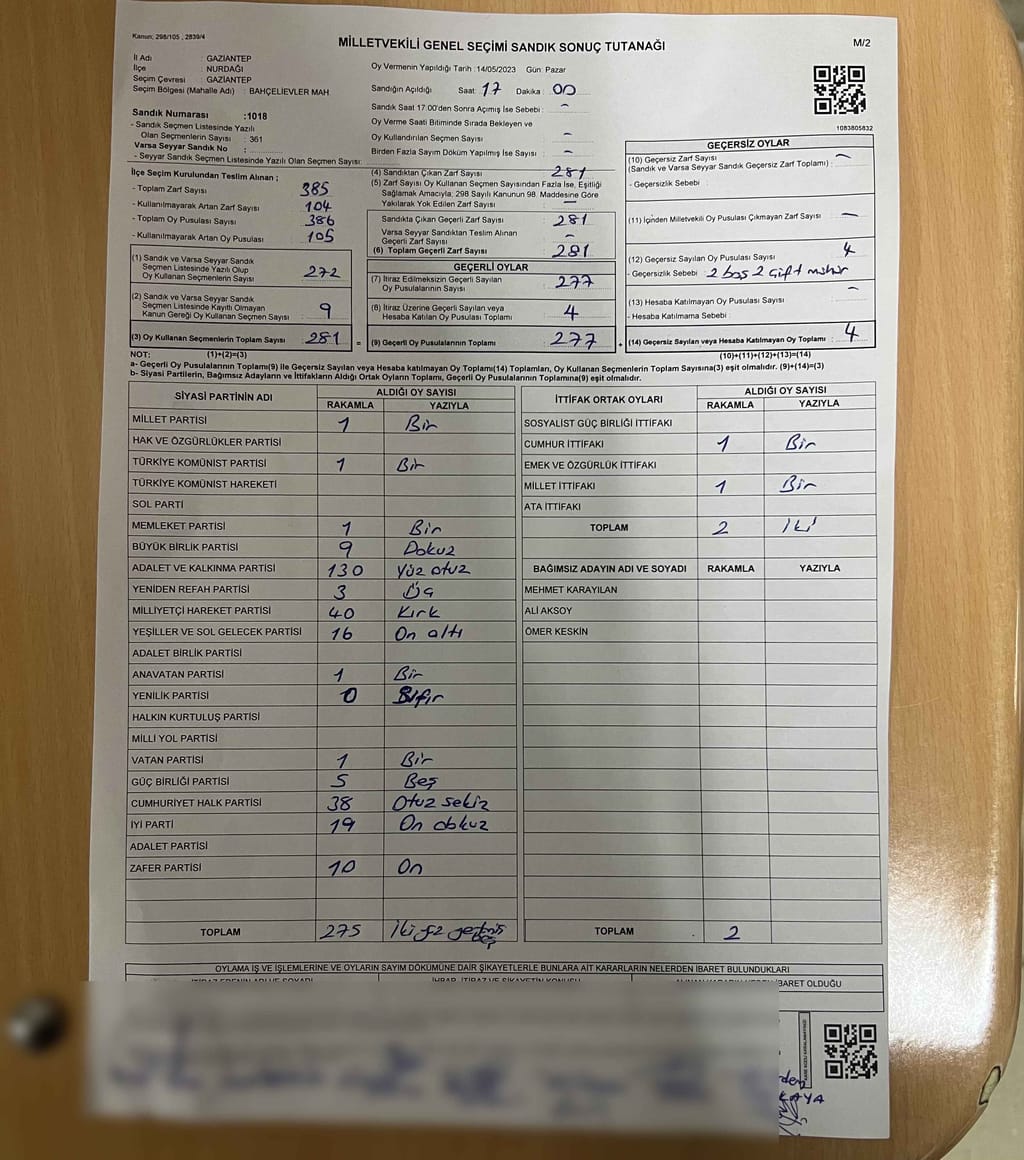 Kanun; 298/105 , 2839/4
MİLLETVEKİLİ GENEL SEÇİMİ SANDIK SONUÇ TUTANAĞI
M/2
İl Adı : GAZİANTEP
İlçe : NURDAĞI
Seçim Çevresi : GAZİANTEP
Seçim Bölgesi (Mahalle Adı) : BAHÇELİEVLER MAH.
Sandık Numarası :1018
- Sandık Seçmen Listesinde Yazılı
Olan Seçmenlerin Sayısı : 361
Varsa Seyyar Sandık No :
- Seyyar Sandık Seçmen Listesinde Yazılı Olan Seçmen Sayısı:
Oy Vermenin Yapıldığı Tarih :14/05/2023 Gün: Pazar
Sandığın Açıldığı Saat: 17 Dakika : 00
Sandık Saat 17:00'den Sonra Açımış İse Sebebi : -
Oy Verme Saati Bitiminde Sırada Bekleyen ve
Oy Kullandırılan Seçmen Sayısı : -
Birden Fazla Sayım Döküm Yapılmış İse Sayısı : -
1083805832
İlçe Seçim Kurulundan Teslim Alınan ;
- Toplam Zarf Sayısı : 385
- Kullanılmayarak Artan Zarf Sayısı : 104
- Toplam Oy Pusulası Sayısı : 386
- Kullanılmayarak Artan Oy Pusulası : 105
(1) Sandık ve Varsa Seyyar Sandık
Seçmen Listesinde Yazılı Olup
Oy Kullanan Seçmenlerin Sayısı : 272
(2) Sandık ve Varsa Seyyar Sandık
Seçmen Listesinde Kayıtlı Olmayan
Kanun Gereği Oy Kullanan Seçmen Sayısı : 9
(3) Oy Kullanan Seçmenlerin Toplam Sayısı : 281 =
(4) Sandıktan Çıkan Zarf Sayısı : 281
(5) Zarf Sayısı Oy Kullanan Seçmen Sayısından Fazla İse, Eşitliği
Sağlamak Amacıyla; 298 Sayılı Kanunun 98. Maddesine Göre
Yakılarak Yok Edilen Zarf Sayısı : -
Sandıkta Çıkan Geçerli Zarf Sayısı : 281
Varsa Seyyar Sandıktan Teslim Alınan
Geçerli Zarf Sayısı : -
(6) Toplam Geçerli Zarf Sayısı : 281
GEÇERLİ OYLAR
(7) İtiraz Edilmeksizin Geçerli Sayılan
Oy Pusulalarının Sayısı : 277
(8) İtiraz Üzerine Geçerli Sayılan veya
Hesaba Katılan Oy Pusulası Toplamı : 4
(9) Geçerli Oy Pusulalarının Toplamı : 277 +
GEÇERSİZ OYLAR
(10) Geçersiz Zarf Sayısı
(Sandık ve Varsa Seyyar Sandık Geçersiz Zarf Toplamı) : -
- Geçersizlik Sebebi :
(11) İçinden Milletvekili Oy Pusulası Çıkmayan Zarf Sayısı : -
(12) Geçersiz Sayılan Oy Pusulası Sayısı : 4
- Geçersizlik Sebebi : 2 boş 2 çift mühür
(13) Hesaba Katılmayan Oy Pusulası Sayısı : -
- Hesaba Katılmama Sebebi :
(14) Geçersiz Sayılan veya Hesaba Katılmayan Oy Toplamı : 4
NOT: (1)+(2)=(3) (10)+(11)+(12)+(13)=(14)
a- Geçerli Oy Pusulasının Toplamı(9) ile Geçersiz Sayılan veya Hesaba katılmayan Oy Toplamı(14) Toplamları, Oy Kullanan Seçmenlerin Toplam Sayısına(3) eşit olmalıdır. (9)+(14)=(3)
b- Siyasi Partilerin, Bağımsız Adayların ve İttifakların Aldığı Ortak Oyların Toplamı, Geçerli Oy Pusulalarının Toplamına(9) eşit olmalıdır.
SİYASİ PARTİNİN ADI ALDIĞI OY SAYISI
RAKAMLA YAZIYLA
MİLLET PARTİSİ 1 Bir
HAK VE ÖZGÜRLÜKLER PARTİSİ
TÜRKİYE KOMÜNİST PARTİSİ 1 Bir
TÜRKİYE KOMÜNİST HAREKETİ
SOL PARTİ
MEMLEKET PARTİSİ 1 Bir
BÜYÜK BİRLİK PARTİSİ 9 Dokuz
ADALET VE KALKINMA PARTİSİ 130 Yüz otuz
YENİDEN REFAH PARTİSİ 3 Üç
MİLLİYETÇİ HAREKET PARTİSİ 40 Kırk
YEŞİLLER VE SOL GELECEK PARTİSİ 16 On altı
ADALET BİRLİK PARTİSİ
ANAVATAN PARTİSİ 1 Bir
YENİLİK PARTİSİ 0 Sıfır
HALKIN KURTULUŞ PARTİSİ
MİLLİ YOL PARTİSİ
VATAN PARTİSİ 1 Bir
GÜÇ BİRLİĞİ PARTİSİ 5 Beş
CUMHURİYET HALK PARTİSİ 38 Otuz sekiz
İYİ PARTİ 19 On dokuz
ADALET PARTİSİ
ZAFER PARTİSİ 10 On
TOPLAM 275 İki yüz yetmiş beş
İTTİFAK ORTAK OYLARI ALDIĞI OY SAYISI
RAKAMLA YAZIYLA
SOSYALİST GÜÇ BİRLİĞİ İTTİFAKI
CUMHUR İTTİFAKI 1 Bir
EMEK VE ÖZGÜRLÜK İTTİFAKI
MİLLET İTTİFAKI 1 Bir
ATA İTTİFAKI
TOPLAM 2 İki
BAĞIMSIZ ADAYIN ADI VE SOYADI RAKAMLA YAZIYLA
MEHMET KARAYILAN
ALİ AKSOY
ÖMER KESKİN
TOPLAM 2
OYLAMA İŞ VE İŞLEMLERİNE VE OYLARIN SAYIM DÖKÜMÜNE DAİR ŞİKAYETLERLE BUNLARA AİT KARARLARIN NELERDEN İBARET BULUNDUKLARI
İBARET OLDUĞU